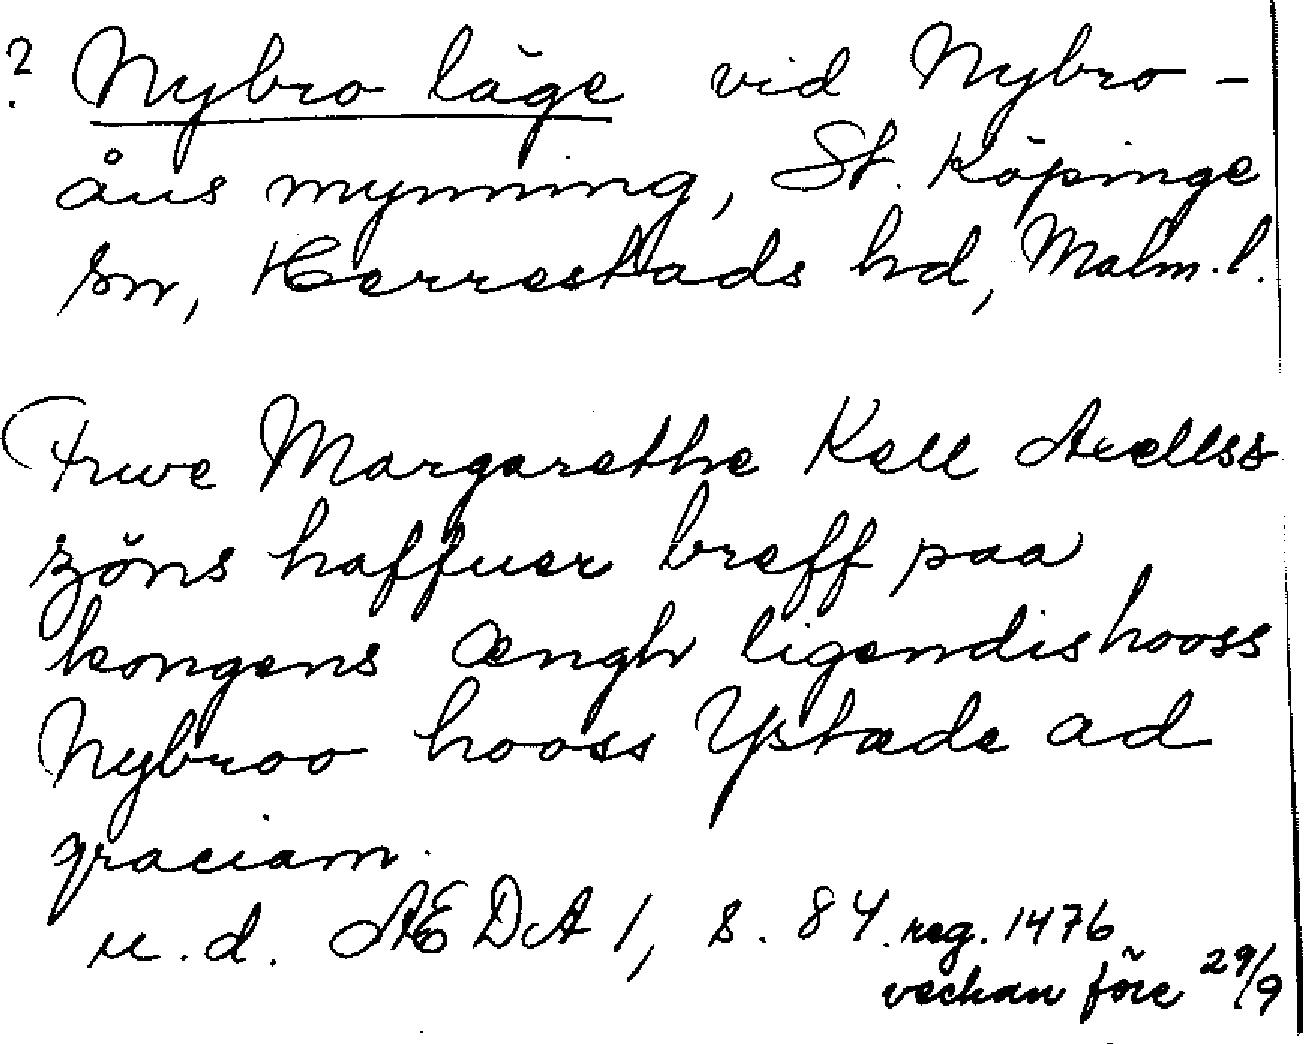 ? Nybro läge vid Nybro-
åns mynning, St. Köpinge
sn, Herrestads hd, Malm. l.
Frwe Margarethe Kell Axellss
zöns haffuer breff paa
kongens Ængh ligendis hooss
Nybroo hooss Ystade ad
graciam.
u.d. ÆDA 1, s. 84. reg. 1476
veckan före 29/9